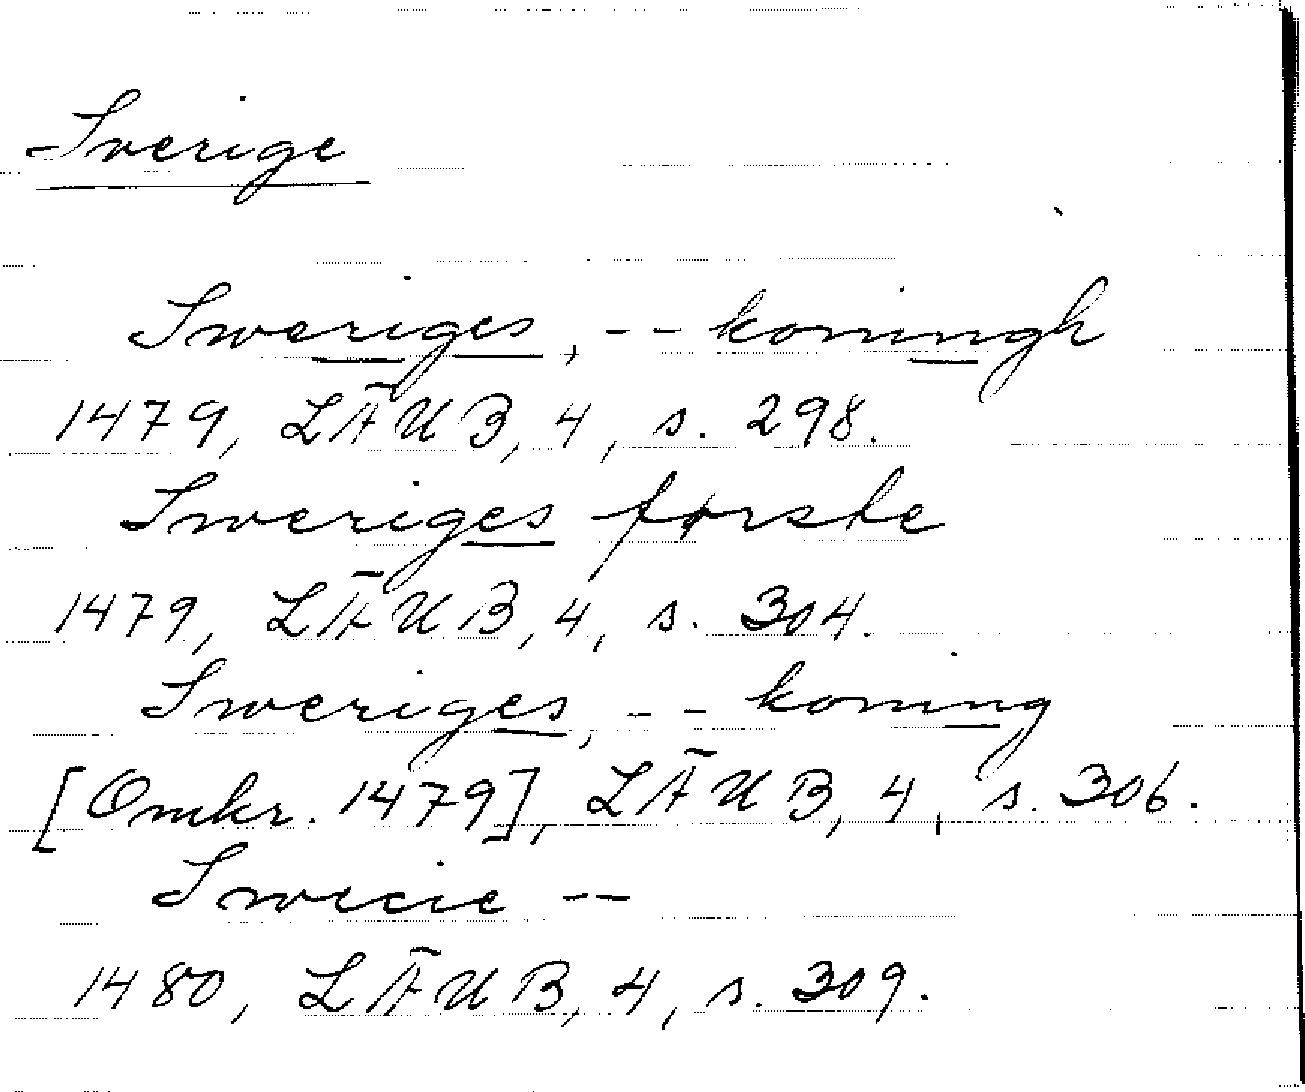 Sverige
Sweriges, -- koningh
1479, LÄUB, 4, s. 298.
Sweriges første
1479, LÄUB, 4, s. 304.
Sweriges, -- koning
[Omkr. 1479], LÄUB, 4, s. 306.
Swecie --
1480, LÄUB, 4, s. 309.